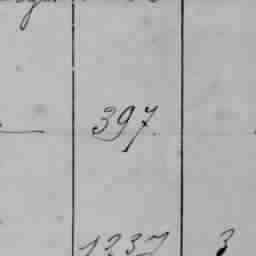 397.
1237 3